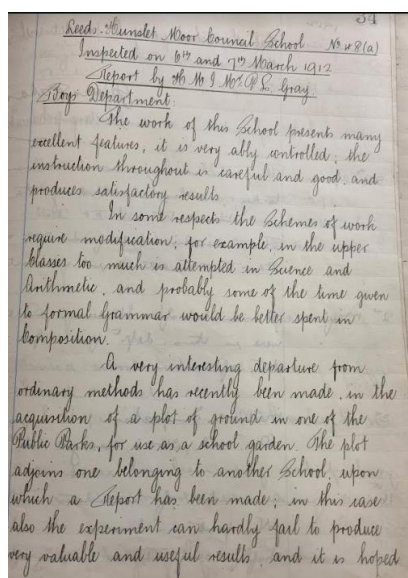 34
Leeds. Hunslet Moor Council School No 48(a)
Inspected on 6th and 7th March 1912
Report by H M I Mr. R. L. Gray
Boys Department:
The work of this School presents many
excellent features, it is very ably controlled, the
instruction throughout is careful and good, and
produces satisfactory results.
In some respects the Schemes of work
require modification, for example, in the upper
Classes too much is attempted in Science and
Arithmetic, and probably some of the time given
to formal Grammar would be better spent in
Composition.
A very interesting departure from
ordinary methods has recently been made, in the
acquisition of a plot of ground in one of the
Public Parks, for use as a school garden. The plot
adjoins one belonging to another School, upon
which a Report has been made; in this case
also the experiment can hardly fail to produce
very valuable and useful results, and it is hoped